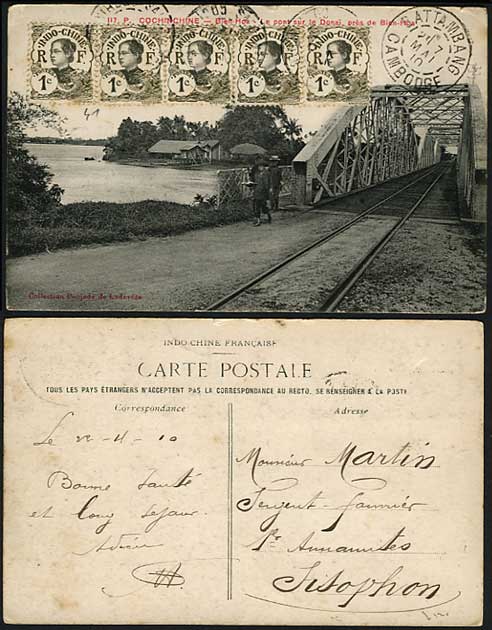 117. P. COCHINCHINE — Bien-Hoa - Le pont sur le Donaï, près de Bien-Hoa
INDO-CHINE INDO-CHINE INDO-CHINE INDO-CHINE INDO-CHINE
R F R F R F R F R F
1c 1c 1c 1c 1c
BATTAMBANG
7
MAI
10
CAMBODGE
41
Collection Poujade de Ladevèze
INDO-CHINE FRANÇAISE
CARTE POSTALE
TOUS LES PAYS ÉTRANGERS N'ACCEPTENT PAS LA CORRESPONDANCE AU RECTO. SE RENSEIGNER A LA POSTE
Correspondance
Adresse
Le 22-4-10
Bonne Santé
et long Séjour
Adieu
Monsieur Martin
Sergent-fourrier
1er Annamites
Sisophon